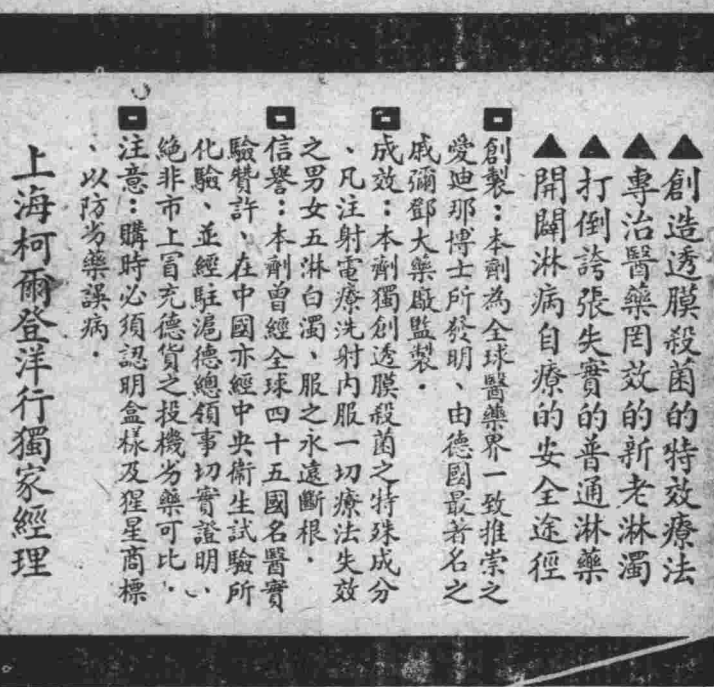 ▲創造透膜殺菌的特效療法
▲專治醫藥罔效的新老淋濁
▲打倒誇張失實的普通淋藥
▲開闢淋病自療的安全途徑
創製：本劑為全球醫藥界一致推崇之
愛迪那博士所發明、由德國最著名之
戚彌鄧大藥廠監製．
成效：本劑獨創透膜殺菌之特殊成分
、凡注射電療洗射內服一切療法失效
之男女五淋白濁、服之永遠斷根．
信譽：本劑曾經全球四十五國名醫實
驗贊許、在中國亦經中央衛生試驗所
化驗、並經駐滬德總領事切實證明、
絕非市上冒充德貨之投機劣藥可比．
注意：購時必須認明盒樣及猩星商標
、以防劣藥誤病．
上海柯爾登洋行獨家經理